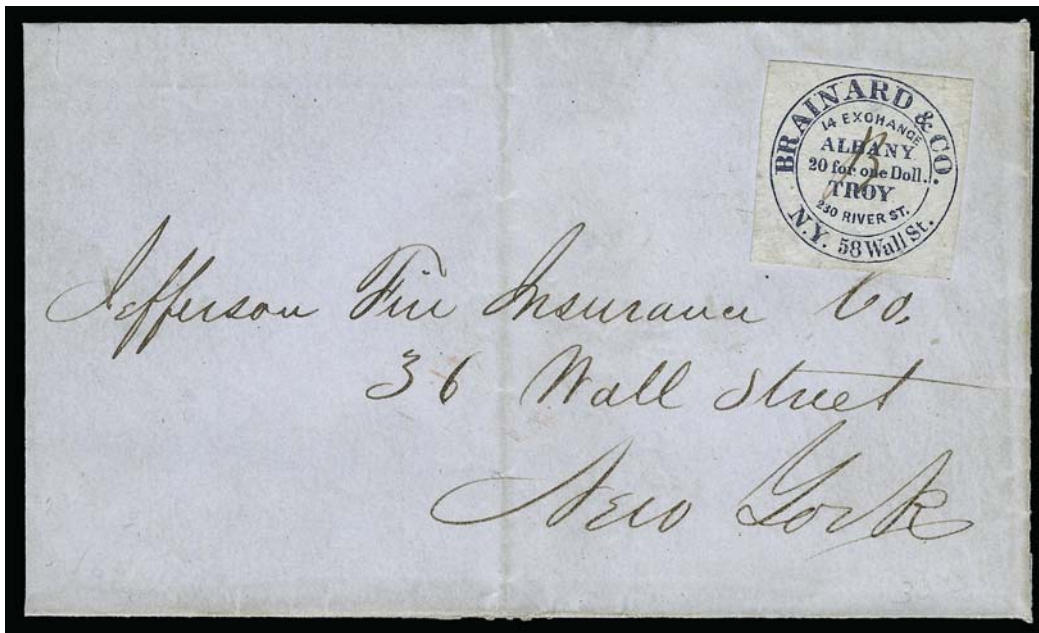 BRAINARD & CO.
14 EXCHANGE
ALBANY
20 for one Doll.
TROY
230 RIVER ST.
N.Y. 58 Wall St.
B
Jefferson Fire Insurance Co.
36 Wall Street
New York